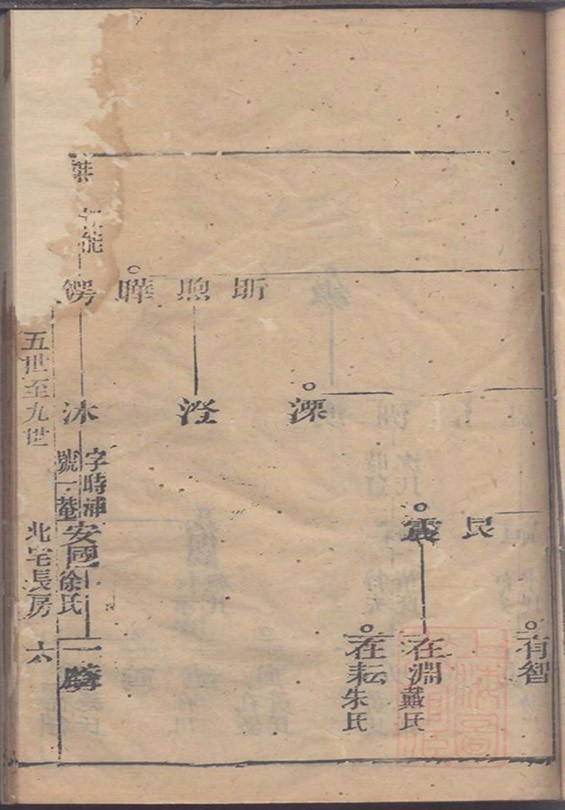 有智
艮
震
在淵 戴氏
在耘 朱氏
溧
昕
煦
澄
曄
鍔
沐 字時浦 號一菴
安國 徐氏
一麟
五世至九世 北宅長房 六